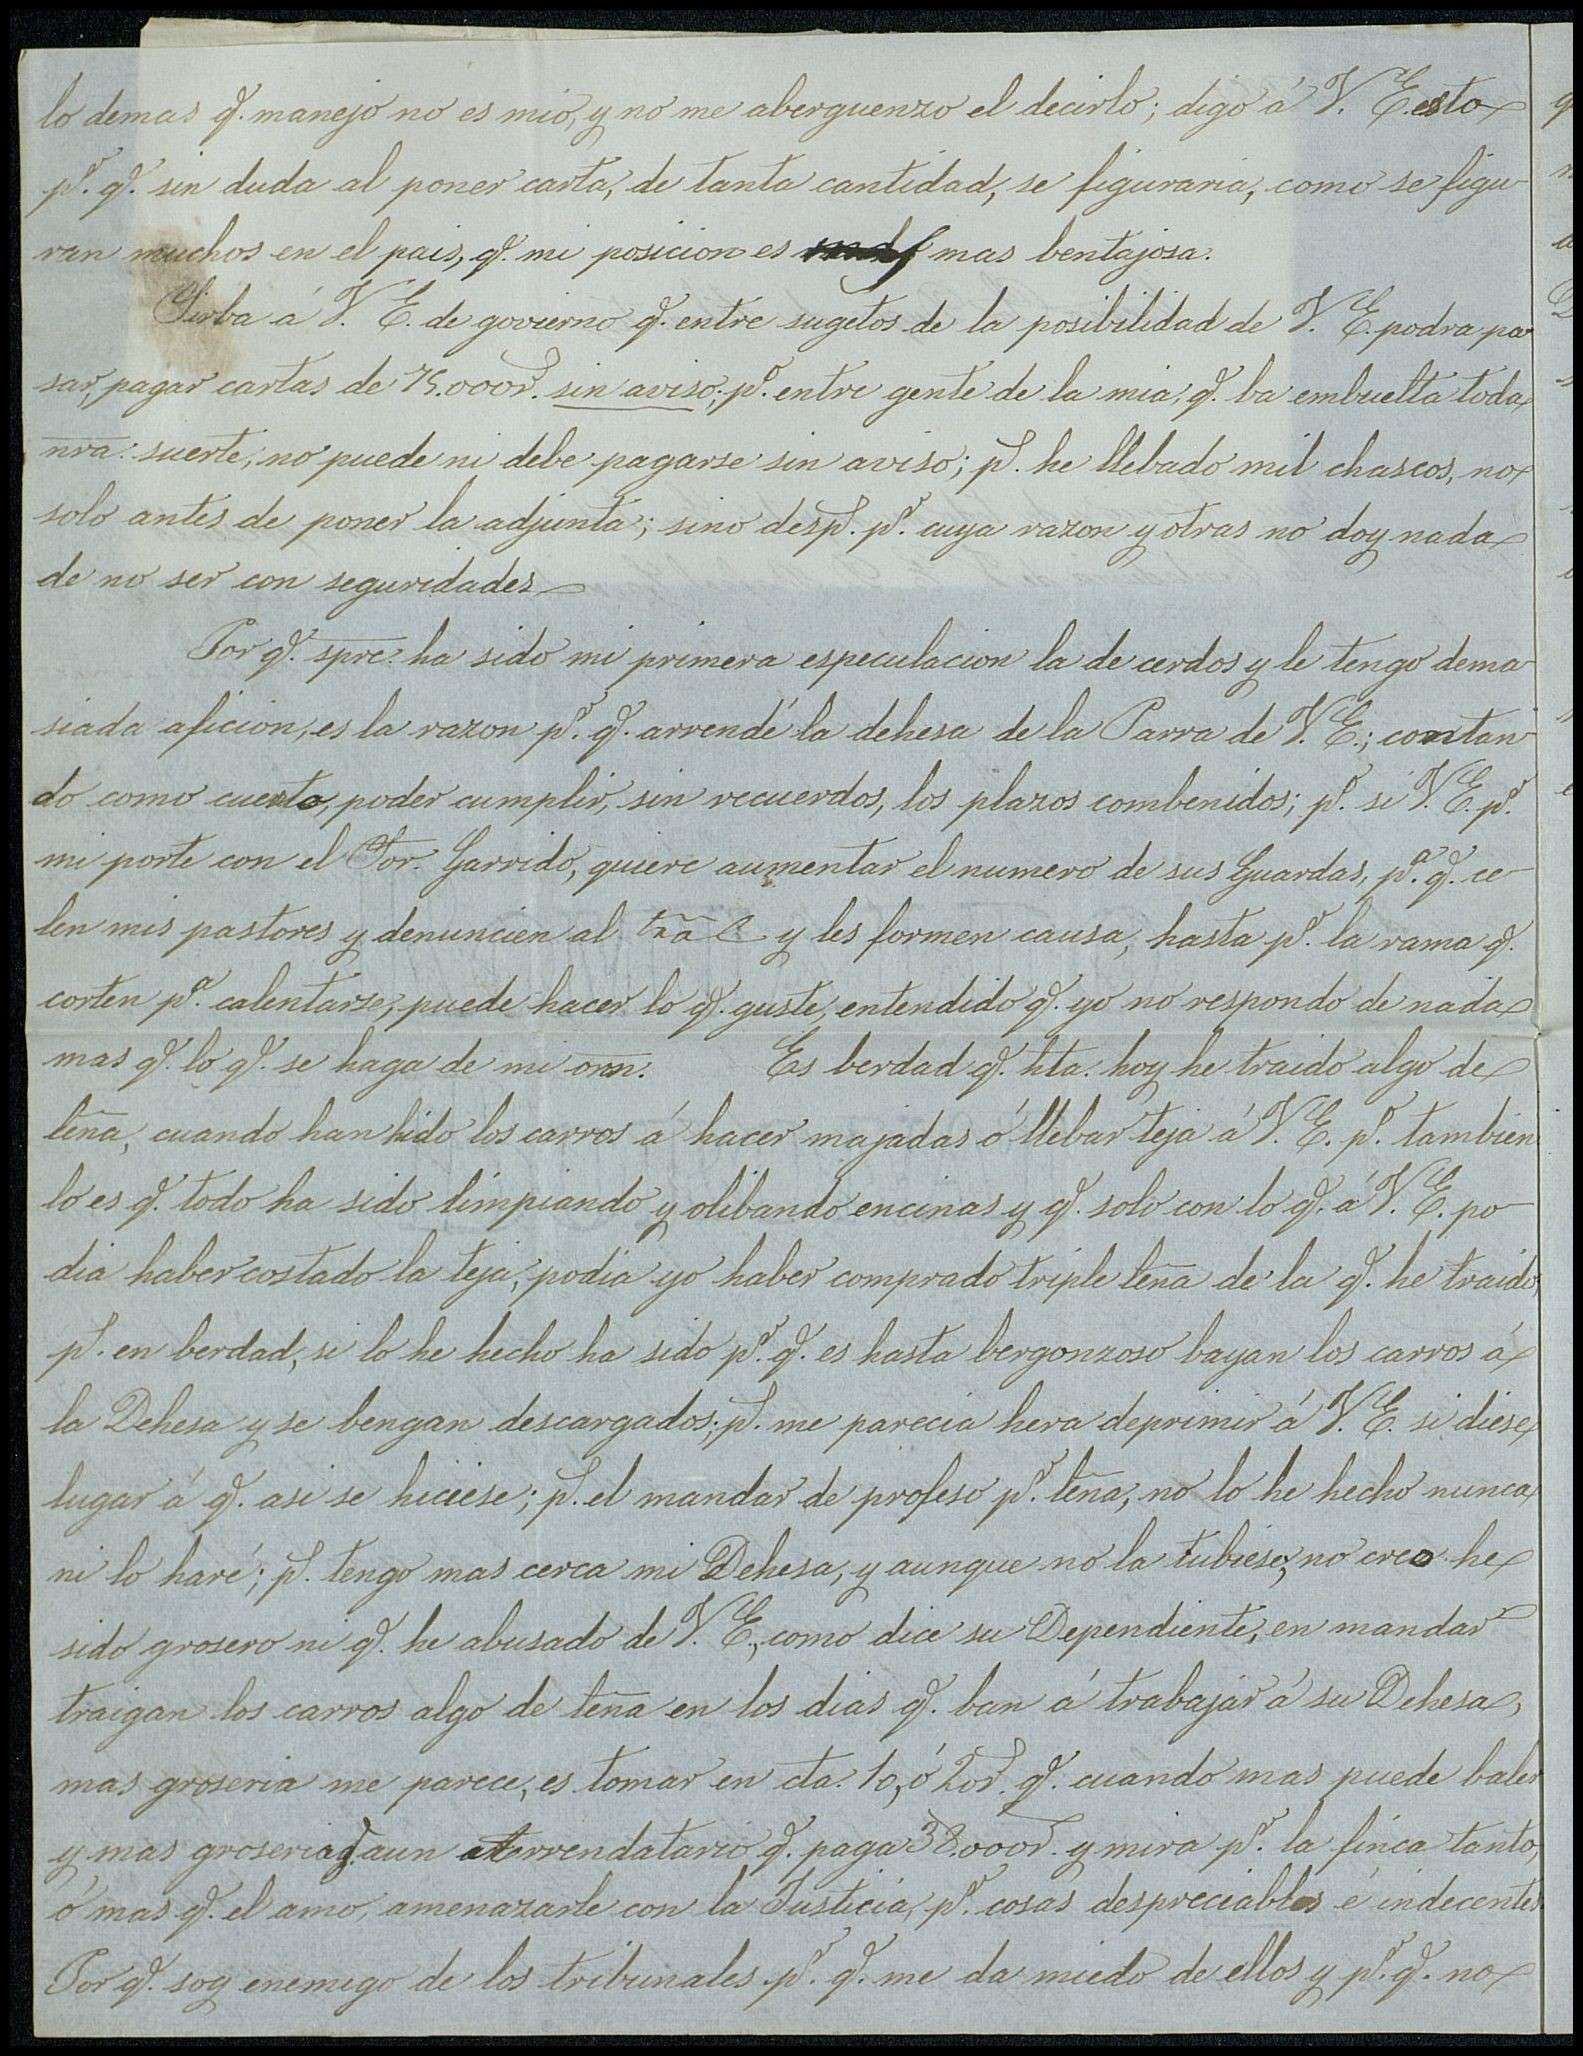 lo demas q.e manejo no es mio, y no me aberguenzo el decirlo; digo á V. E. esto
p.r q.e sin duda al poner carta, de tanta cantidad, se figuraria, como se figu-
ran muchos en el pais, q.e mi posicion es mas bentajosa.
Sirba á V. E. de govierno q.e entre sugetos de la posibilidad de V. E. podra pa-
sar, pagar cartas de 75.000 r.s sin aviso; p.o entre gente de la mia, q.e ba embuelta toda
nra. suerte, no puede ni debe pagarse sin aviso; p.s he llebado mil chascos, no
solo antes de poner la adjunta; sino desp.s p.r cuya razon y otras no doy nada
de no ser con seguridades
Por q.e spre. ha sido mi primera especulacion la de cerdos y le tengo dema-
siada aficion, es la razon p.r q.e arrendé la dehesa de la Parra de V. E.; contan-
do como cuento, poder cumplir, sin recuerdos, los plazos combenidos; p.s si V. E. p.r
mi porte con el Sor. Garrido, quiere aumentar el numero de sus Guardas, p.a q.e ce-
len mis pastores y denuncien al y les formen causa, hasta p.r la rama q.e
corten p.a calentarse, puede hacer lo q.e guste, entendido q.e yo no respondo de nada
mas q.e lo q.e se haga de mi orn. Es berdad q.e hta. hoy he traido algo de
leña, cuando han hido los carros á hacer majadas ó llebar teja á V. E. p.o tambien
lo es q.e todo ha sido limpiando y olibando encinas y q.e solo con lo q.e á V. E. po-
dia haber costado la teja, podia yo haber comprado triple leña de la q.e he traido,
p.s en berdad, si lo he hecho ha sido p.r q.e es hasta bergonzoso bayan los carros á
la Dehesa y se bengan descargados; p.s me parecia hera deprimir á V. E. si diese
lugar á q.e asi se hiciese; p.s el mandar de profeso p.r leña, no lo he hecho nunca
ni lo haré; p.s tengo mas cerca mi Dehesa, y aunque no la tubiese, no creo he
sido grosero ni q.e he abusado de V. E., como dice su Dependiente, en mandar
traigan los carros algo de leña en los dias q.e ban á trabajar á su Dehesa,
mas groseria me parece, es tomar en cta. 10, ó 20 r.s q.e cuando mas puede baler
y mas groseria q.e aun arrendatario q.e paga 38.000 r.s y mira p.r la finca tanto,
ó mas q.e el amo, amenazarle con la Justicia, p.r cosas despreciables é indecentes.
Por q.e soy enemigo de los tribunales p.r q.e me da miedo de ellos y p.r q.e no